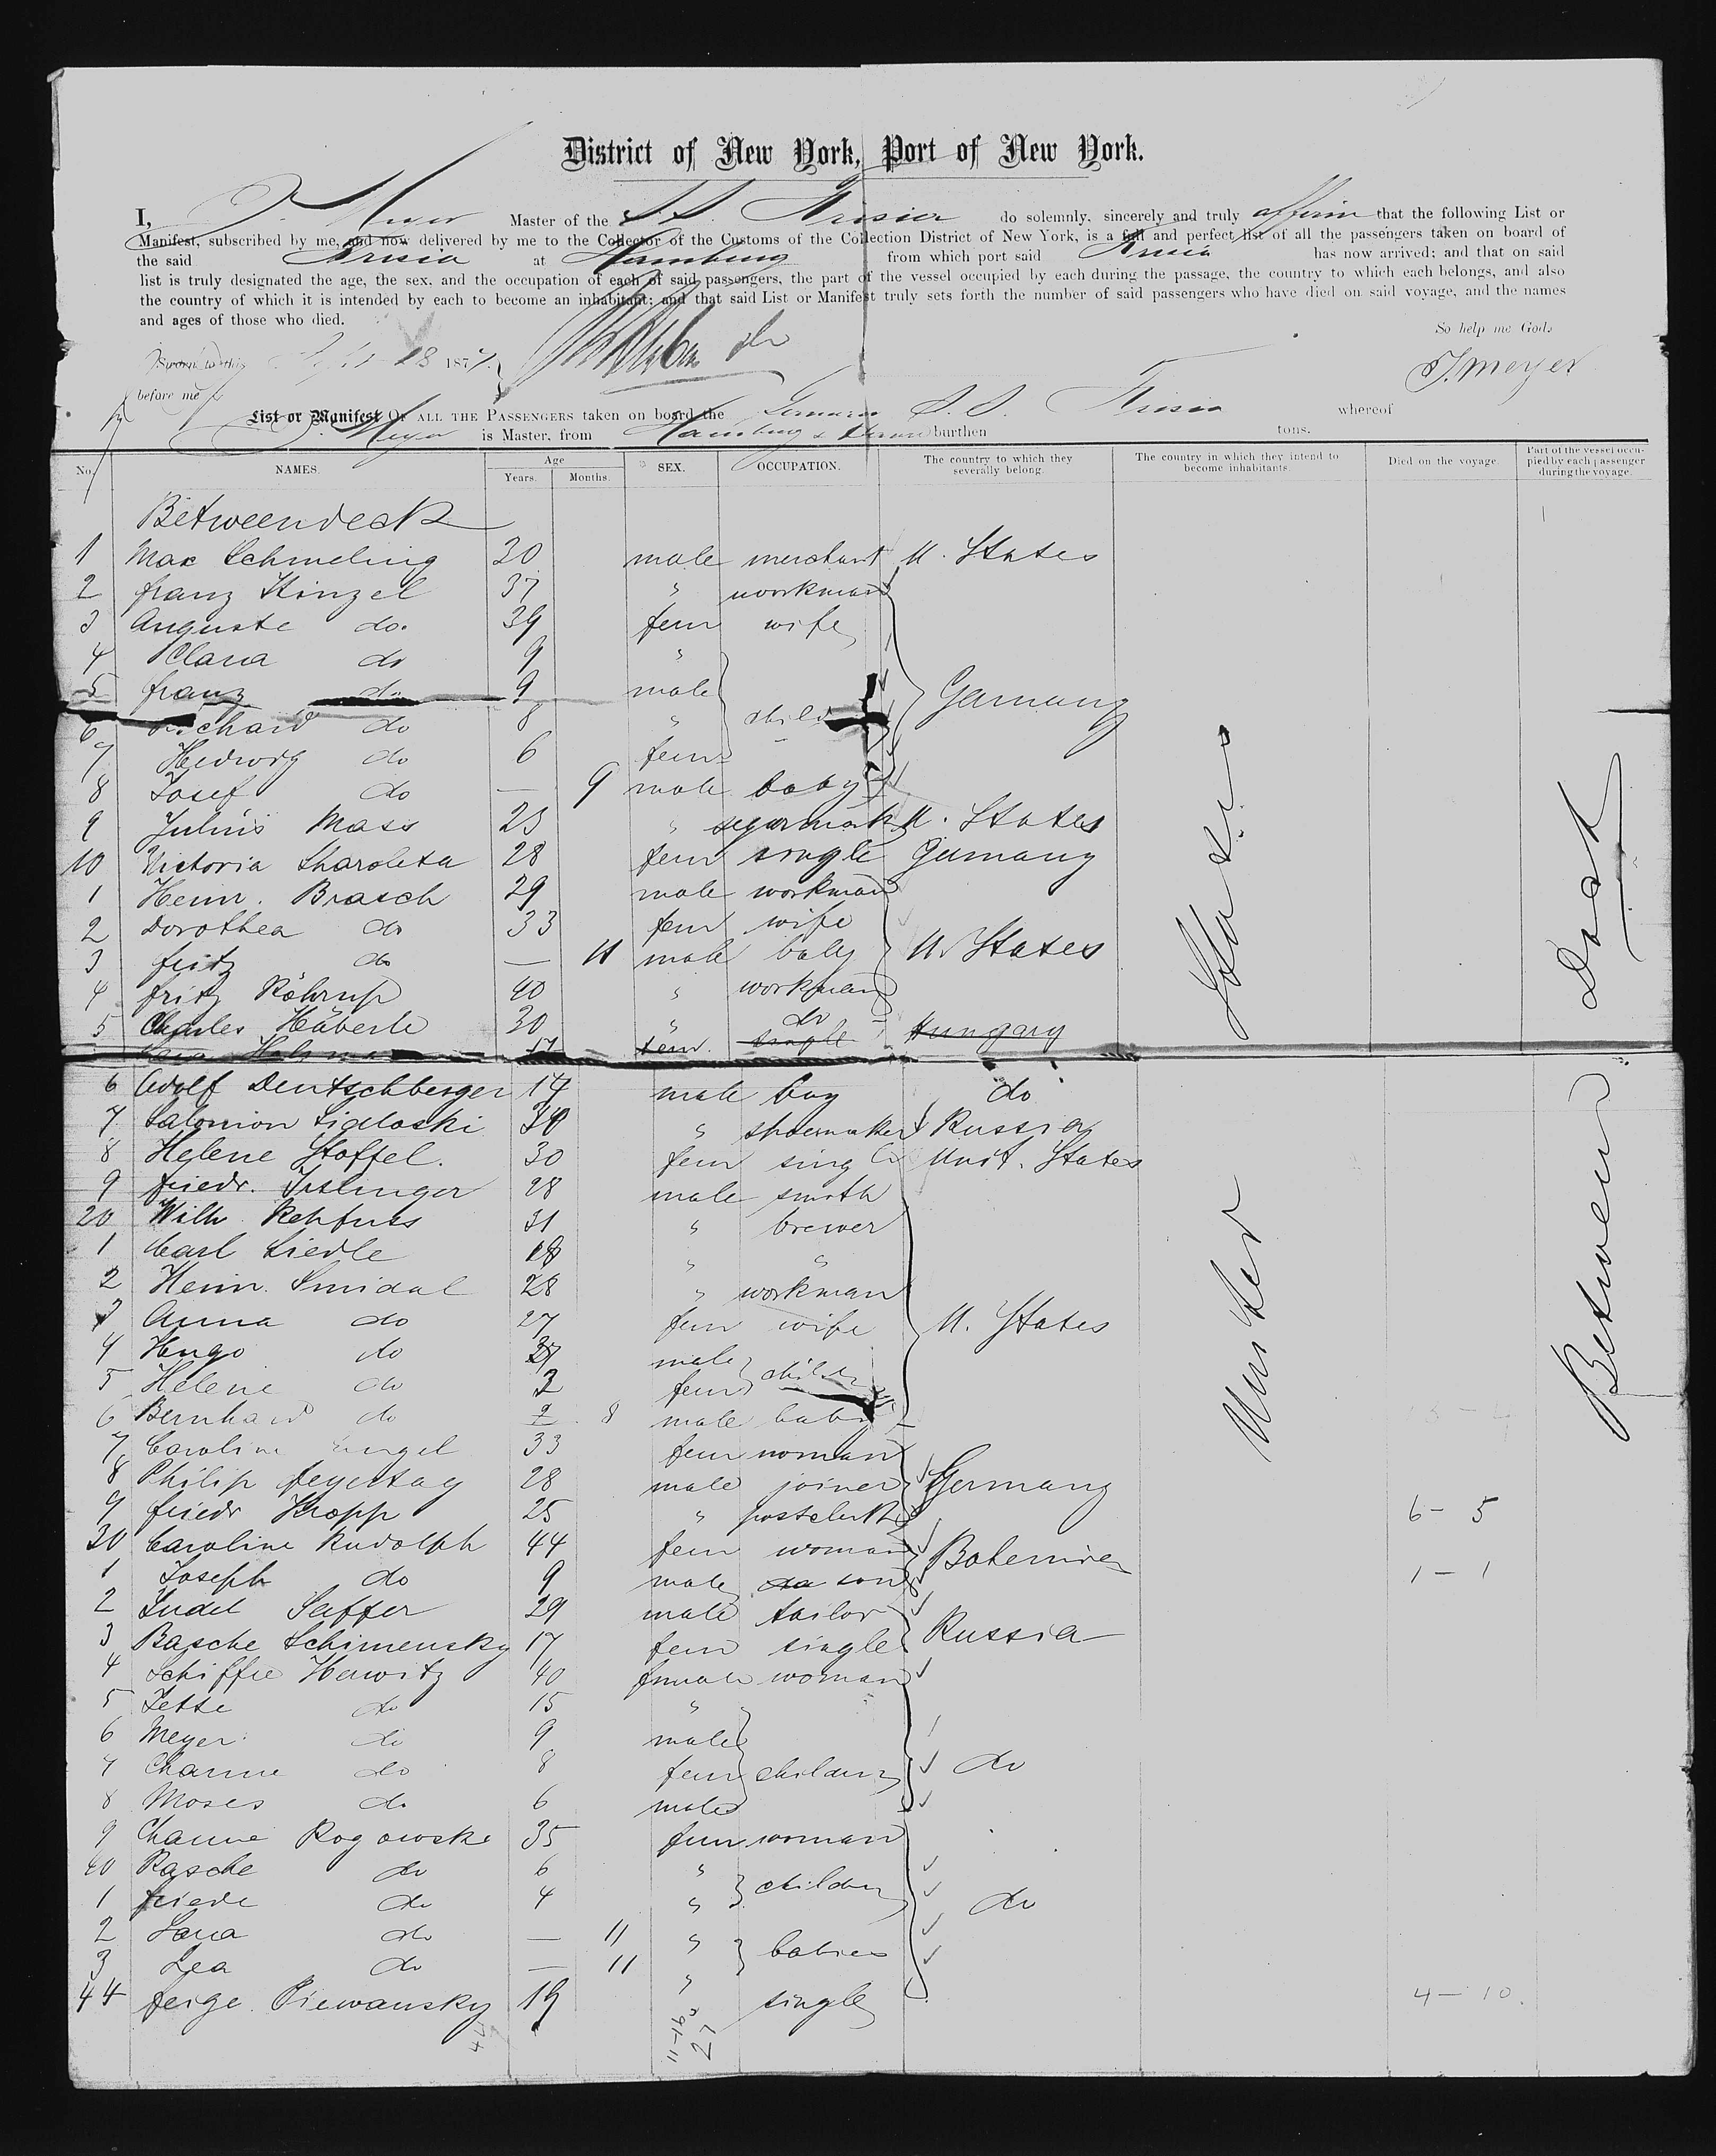 District of New York, Port of New York.
I, J. Meyer Master of the S. S. Frisia do solemnly, sincerely and truly affirm that the following List or
Manifest, subscribed by me, and now delivered by me to the Collector of the Customs of the Collection District of New York, is a full and perfect list of all the passengers taken on board of
the said Frisia at Hamburg from which port said Frisia has now arrived; and that on said
list is truly designated the age, the sex, and the occupation of each of said passengers, the part of the vessel occupied by each during the passage, the country to which each belongs, and also
the country of which it is intended by each to become an inhabitant; and that said List or Manifest truly sets forth the number of said passengers who have died on said voyage, and the names
and ages of those who died.
So help me God.
Sworn to this Sept 18 187
J. Meyer
before me
List or Manifest OF ALL THE PASSENGERS taken on board the German S. S. Frisia whereof
J. Meyer is Master, from Hamburg & Havre burthen tons.
No. NAMES. Age Years. Months. SEX. OCCUPATION. The country to which they severally belong. The country in which they intend to become inhabitants. Died on the voyage. Part of the vessel occupied by each passenger during the voyage.
Betweendeck
1 Max Schmeling 30 male merchant U. States
2 franz Hinzel 37 " workman
3 Auguste do. 39 fem wife
4 Clara do 9 "
5 franz do 9 male
Germany
6 Richard do 8 " child
7 Hedwig do 6 fem
8 Josef do — 9 male baby
9 Julius Mass 23 " segarmak U. States
10 Victoria Sharoleta 28 fem single Germany
1 Heinr. Brasch 29 male workman
2 Dorothea do 33 fem wife
3 fritz do — 11 male baby U. States
4 fritz Röhrup 40 " workman
5 Charles Häberle 30 " do
17 fem. single Hungary
6 Adolf Deutschberger 14 male boy do
7 Salomon Sialoski 30 " shoemaker Russia
8 Helene Stoffel. 30 fem single Unit. States
9 friedr. Islinger 28 male smith
20 Wilh. Rehfuss 31 " brewer
1 Carl Liedle 18 " "
2 Heinr. Smidal 28 " workman
3 Anna do 27 fem wife U. States
4 Hugo do male
5 Helene do 3 fem child
6 Bernhard do 8 male baby
7 Caroline Engel 33 fem woman
8 Philip feyertag 28 male joiner Germany
9 friedr Kropp 25 " postclerk 6 - 5
30 Caroline Rudolph 44 fem woman Bohemia
1 Joseph do 9 male son 1 - 1
2 Judel Saffer 29 male tailor
3 Basche Schimensky 17 fem single Russia
4 Schiffre Herwitz 40 female woman
5 Jette do 15 "
6 Meyer do 9 male
7 Channe do 8 fem children do
8 Moses do 6 male
9 Channe Rogowski 35 fem woman
40 Rasche do 6 "
1 friede do 4 " children do
2 Sara do — 11 "
3 Lea do — 11 " babies
44 feige Piewansky 19 " single 4 - 10.
United States
Between Deck
27